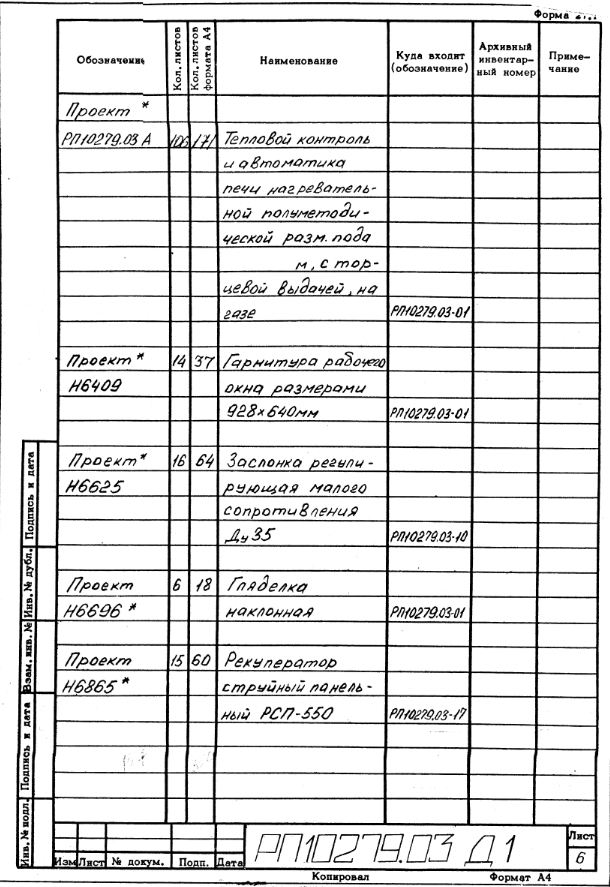 Обозначение
Кол. листов
Кол. листов формата А4
Наименование
Куда входит (обозначение)
Архивный инвентарный номер
Приме-чание
Проект *
РП10279.03 А 106 171 Тепловой контроль
и автоматика
печи нагреватель-
ной полуметоди-
ческой разм. пода
м, с тор-
цевой выдачей, на
газе РП10279.03-01
Проект * 14 37 Гарнитура рабочего
Н6409 окна размерами
928х640мм РП10279.03-01
Проект * 16 64 Заслонка регули-
Н6625 рующая малого
сопротивления
Ду 35 РП10279.03-10
Проект 6 18 Гляделка
Н6696 * наклонная РП10279.03-01
Проект 15 60 Рекуператор
Н6865 * струйный панель-
ный РСП-550 РП10279.03-17
Инв. № подл. Подпись и дата Взам. инв. № Инв. № дубл. Подпись и дата
Изм Лист № докум. Подп. Дата
РП10279.03 Д1
Лист
6
Копировал Формат А4